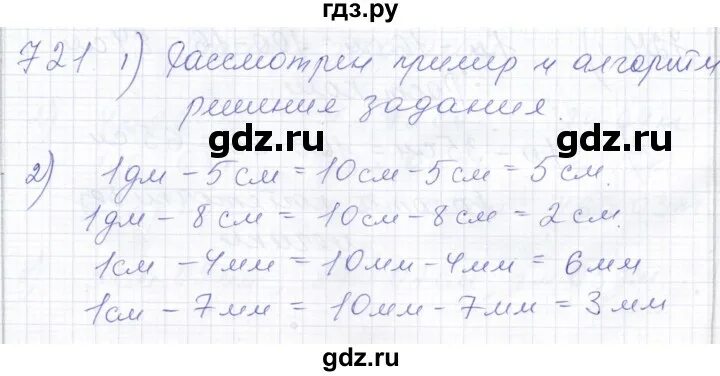 гдз.ру
721 1) Рассмотрен пример и алгоритм
решения задания.
gdz.ru gdz.ru
2) 1дм - 5см = 10см - 5см = 5см.
1дм - 8см = 10см - 8см = 2см.
1см - 4мм = 10мм - 4мм = 6мм
1см - 7мм = 10мм - 7мм = 3мм
gdz.ru gdz.ru
gdz.ru